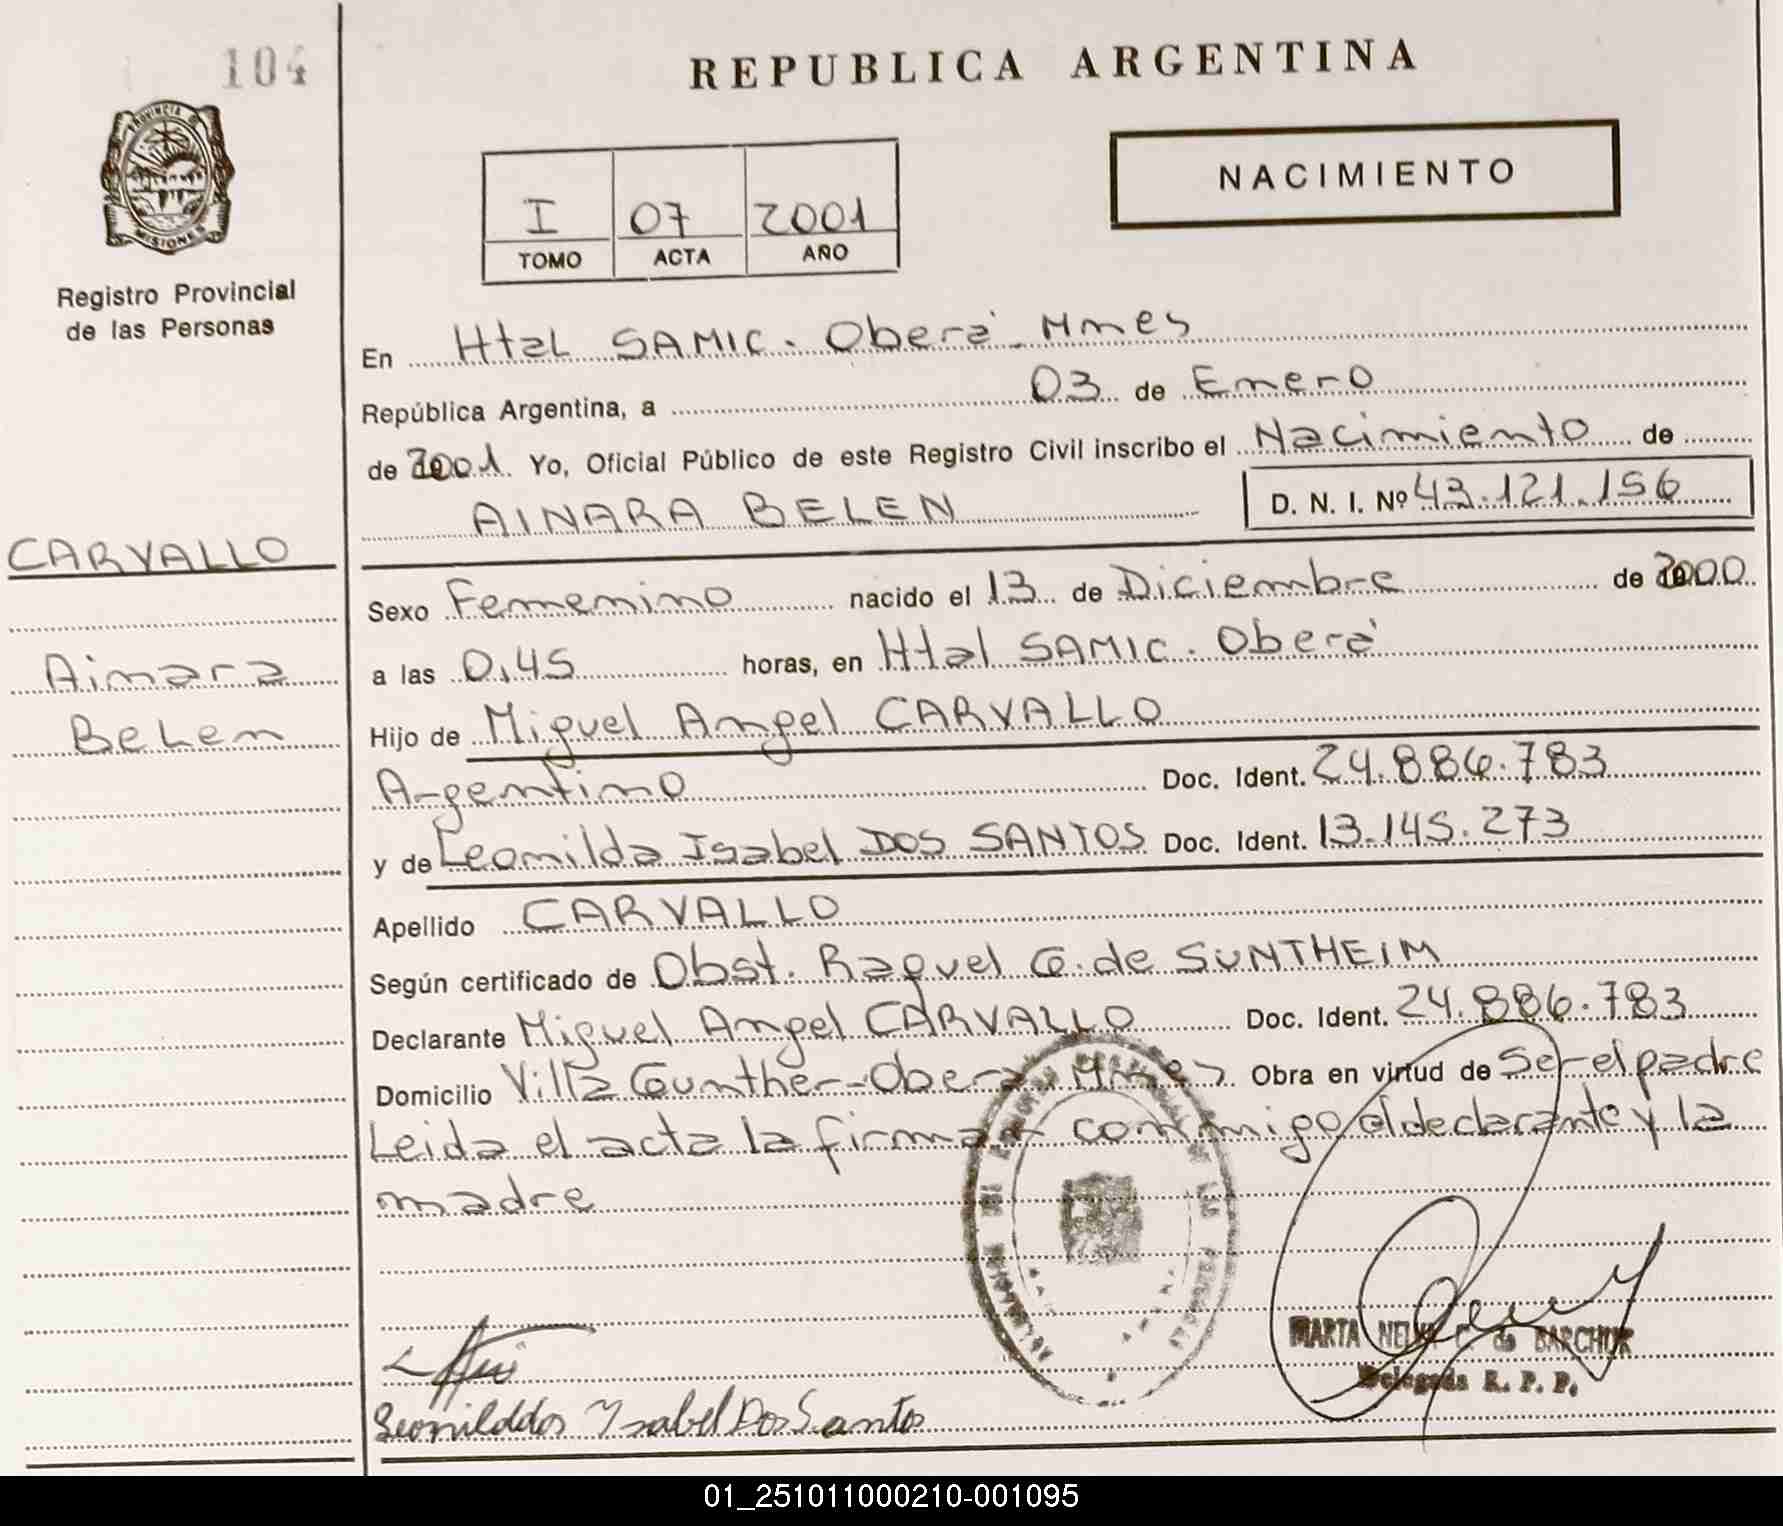 104
REPUBLICA ARGENTINA
PROVINCIA DE
MISIONES
Registro Provincial
de las Personas
NACIMIENTO
I 07 2001
TOMO ACTA AÑO
En Htal SAMIC. Oberá Mnes
República Argentina, a 03 de Enero
de 2001 Yo, Oficial Público de este Registro Civil inscribo el Nacimiento de
AINARA BELEN D. N. I. Nº 43.121.156
CARVALLO
Ainara
Belen
Sexo Femenino nacido el 13 de Diciembre de 2000
a las 0,45 horas, en Htal SAMIC. Oberá
Hijo de Miguel Angel CARVALLO
Argentino Doc. Ident. 24.886.783
y de Leonilda Isabel DOS SANTOS Doc. Ident. 13.145.273
Apellido CARVALLO
Según certificado de Obst. Raquel G. de SUNTHEIM
Declarante Miguel Angel CARVALLO Doc. Ident. 24.886.783
Domicilio Villa Gunther-Oberá Mnes Obra en virtud de Ser el padre
Leida el acta la firman conmigo el declarante y la
madre
MARTA NELLY C. de BARCHUK
Delegada R. P. P.
Leonilddos Ysabel Dos Santos
01_251011000210-001095